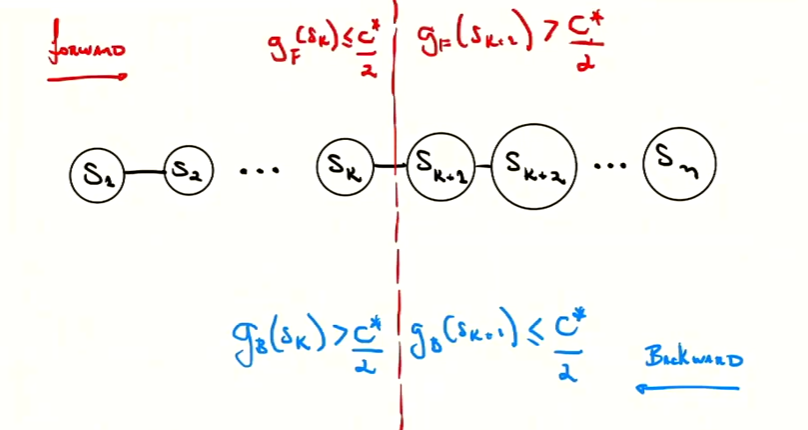 FORWARD
g_F(S_K) ≤ C*/2
g_F(S_{K+1}) > C*/2
S_1 S_2 ... S_K S_{K+1} S_{K+2} ... S_n
g_B(S_K) > C*/2
g_B(S_{K+1}) ≤ C*/2
BACKWARD